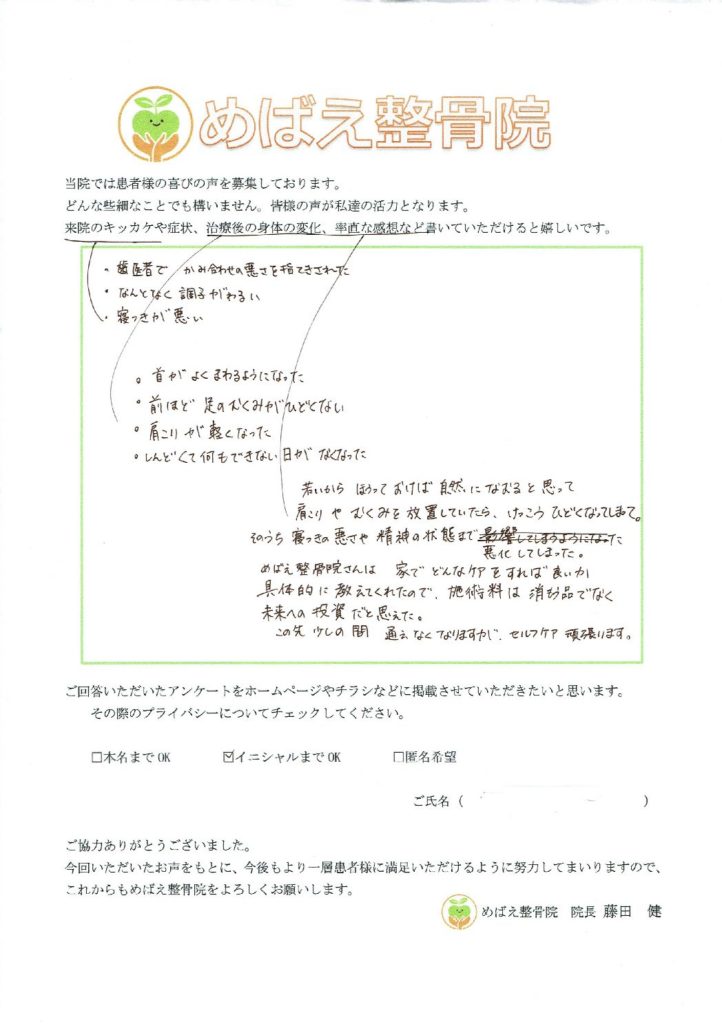 めばえ整骨院
当院では患者様の喜びの声を募集しております。
どんな些細なことでも構いません。皆様の声が私達の活力となります。
来院のキッカケや症状、治療後の身体の変化、率直な感想など書いていただけると嬉しいです。
・歯医者で かみ合わせの悪さを指てきされた
・なんとなく 調子がわるい
・寝つきが悪い
。首が よくまわるようになった
。前ほど 足のむくみがひどくない
・肩こりが軽くなった
・しんどくて何もできない日が なくなった
若いから ほうっておけば 自然に なおると思って
肩こりや むくみを放置していたら、けっこう ひどくなってしまって。
そのうち 寝つきの悪さや 精神の状態まで 影響してしまうようになった
悪化してしまった。
めばえ整骨院さんは 家で どんなケアをすれば良いか
具体的に 教えてくれたので、施術料は 消耗品でなく
未来への投資だと思えた。
この先 少しの間 通えなくなりますが、セルフケア 頑張ります。
ご回答いただいたアンケートをホームページやチラシなどに掲載させていただきたいと思います。
その際のプライバシーについてチェックしてください。
□本名までOK ☑イニシャルまでOK □匿名希望
ご氏名（ ）
ご協力ありがとうございました。
今回いただいたお声をもとに、今後もより一層患者様に満足いただけるように努力してまいりますので、
これからもめばえ整骨院をよろしくお願いします。
めばえ整骨院 院長 藤田 健